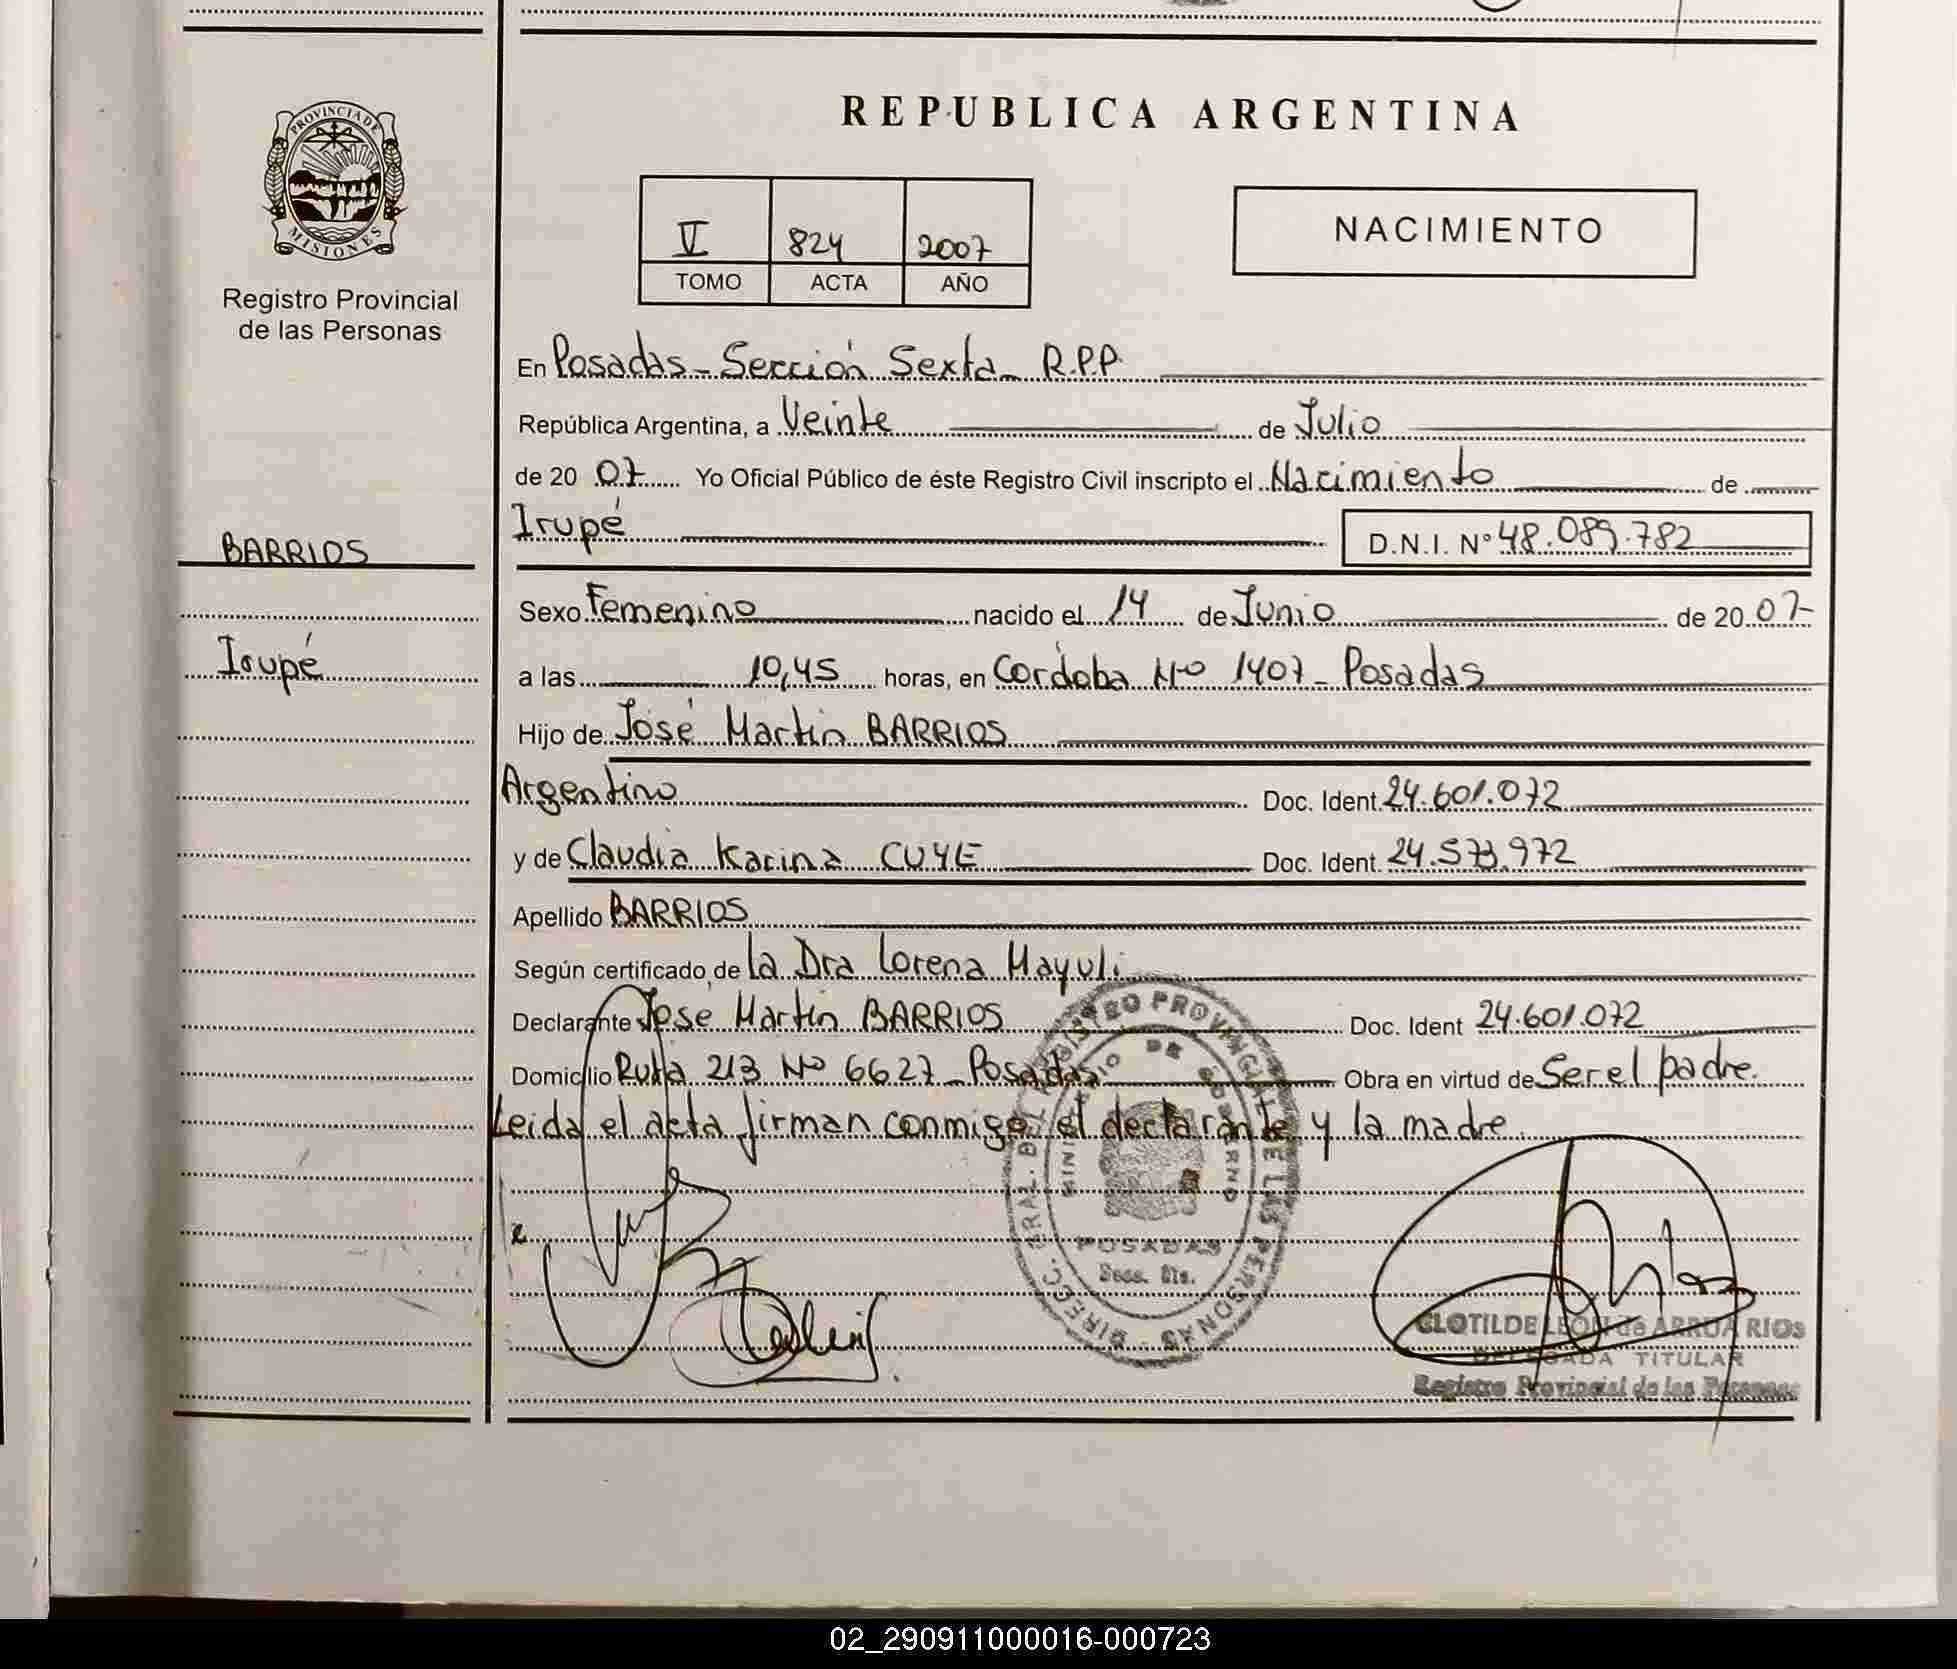 PROVINCIA DE
MISIONES
Registro Provincial
de las Personas
BARRIOS
Irupé
REPUBLICA ARGENTINA
V 824 2007
TOMO ACTA AÑO
NACIMIENTO
En Posadas - Sección Sexta - R.P.P.
República Argentina, a Veinte de Julio
de 20 07 Yo Oficial Público de éste Registro Civil inscripto el Nacimiento de
Irupé D.N.I. N° 48.089.782
Sexo Femenino nacido el 14 de Junio de 20 07
a las 10,45 horas, en Córdoba No 1407 - Posadas
Hijo de José Martin BARRIOS
Argentino Doc. Ident. 24.601.072
y de Claudia Karina CUYE Doc. Ident. 24.573.972
Apellido BARRIOS
Según certificado de la Dra Lorena Mayuli
Declarante José Martin BARRIOS Doc. Ident 24.601.072
Domicilio Ruta 213 No 6627 - Posadas Obra en virtud de Ser el padre.
Leida el acta firman conmigo el declarante y la madre
DIRECC. GRAL. DEL REGISTRO PROVINCIAL DE LAS PERSONAS
MINISTERIO DE GOBIERNO
POSADAS
CLOTILDE LEON de ARRUA RIOS
DELEGADA TITULAR
Registro Provincial de las Personas
02_290911000016-000723